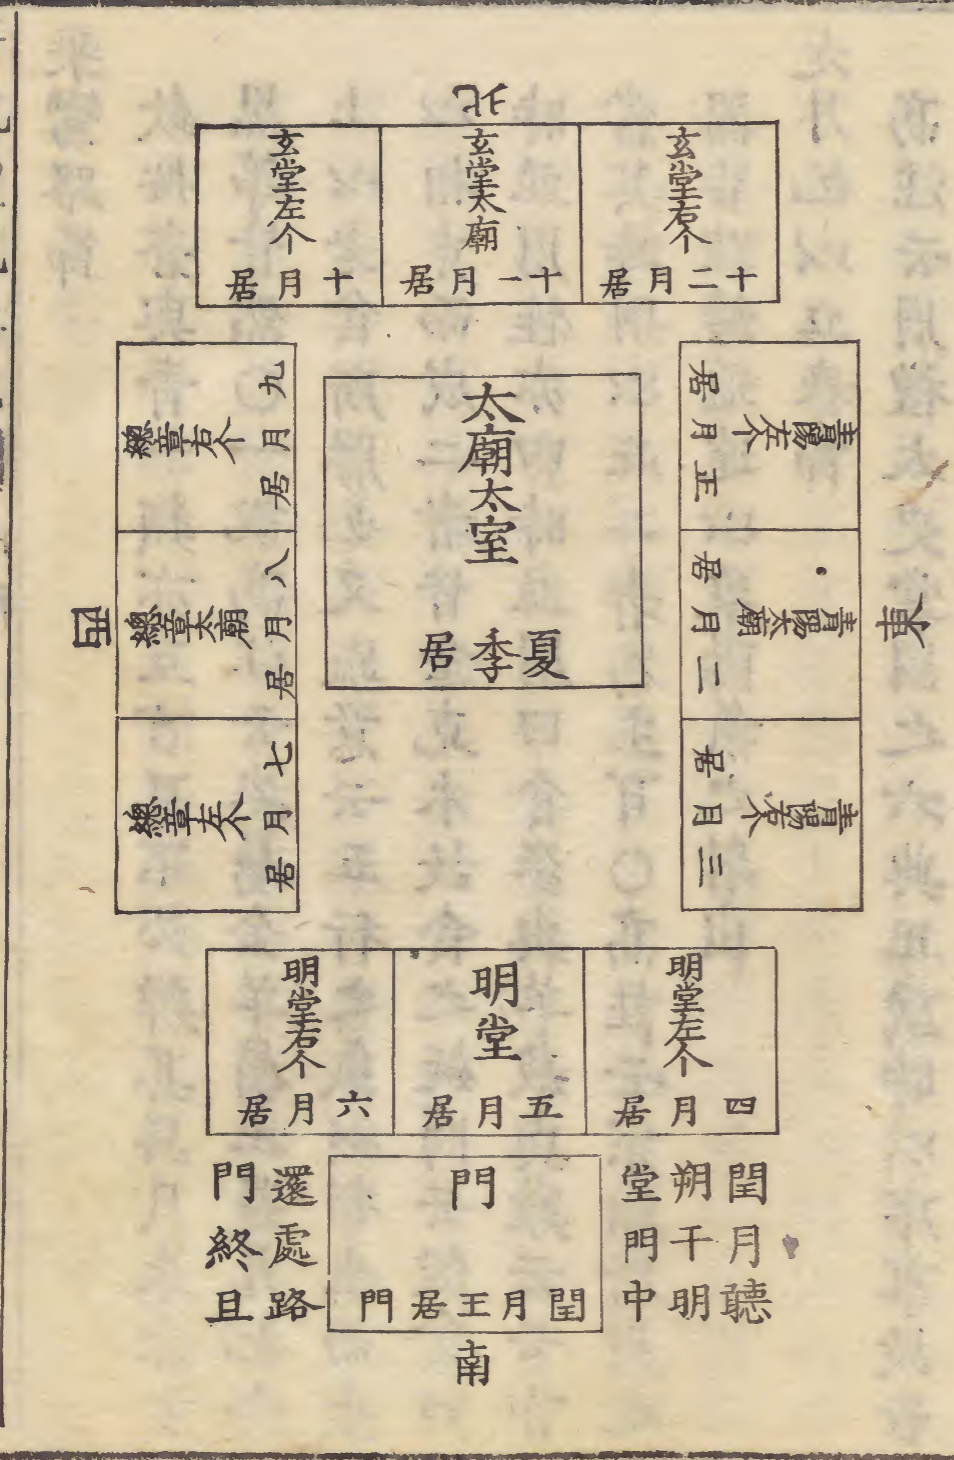 北
玄堂右个
十二月居
玄堂太廟
十一月居
玄堂左个
十月居
東
青陽左个
正月居
青陽太廟
二月居
青陽右个
三月居
太廟太室
夏季居
西
總章右个
九月居
總章太廟
八月居
總章左个
七月居
明堂左个
四月居
明堂
五月居
明堂右个
六月居
閏月聽
朔干明
堂門中
門
閏月王居門
還處路
門終且
南